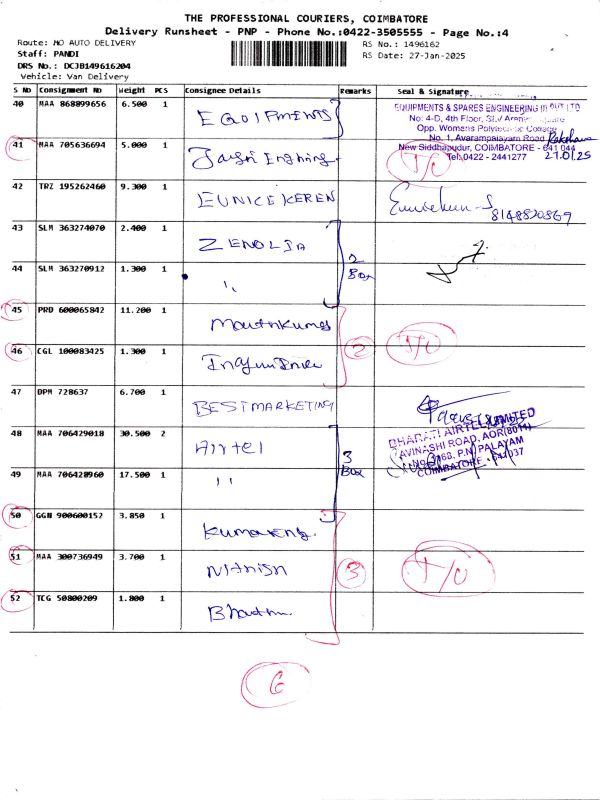 THE PROFESSIONAL COURIERS, COIMBATORE
Delivery Runsheet - PNP - Phone No.:0422-3505555 - Page No.:4
Route: MO AUTO DELIVERY
RS No.: 1496162
Staff: PANDI
RS Date: 27-Jan-2025
DRS No.: DCJB149616204
Vehicle: Van Delivery
S No Consignment No Weight PCS Consignee Details Remarks Seal & Signature
40 MAA 868899656 6.500 1 EQUIPMENTS
EQUIPMENTS & SPARES ENGINEERING OUT LTD
No: 4-D, 4th Floor,
Opp. Womens Polytechnic College
No. 1, Avarampalayam Road
New Siddhapudur, COIMBATORE - 641 044
Tel: 0422 - 2441277 27.01.25
41 MAA 705636694 5.000 1 T/O
42 TRZ 195262460 9.300 1 EUNICE KEREN
8148820869
43 SLM 363274070 2.400 1 ZENOLIA 2 Box
44 SLM 363270912 1.300 1 "
45 PRD 600065842 11.200 1
46 CGL 100083425 1.300 1 2 T/O
47 DPM 728637 6.700 1 BEST MARKETING
48 MAA 706429018 30.500 2 Airtel 3 Box
BHARATI AIRTEL LIMITED
AVINASHI ROAD, AOR(8011)
P.N. PALAYAM
COIMBATORE - 641037
49 MAA 706428960 17.500 1 "
50 GGN 900600152 3.850 1
51 MAA 300736949 3.700 1 Nithish 3 T/O
52 TCG 50800209 1.800 1
6